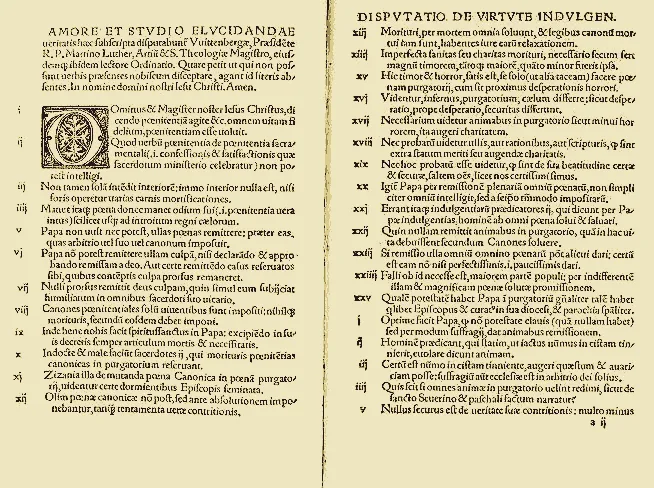 AMORE ET STVDIO ELVCIDANDAE
ueritatis hæc ſubſcripta diſputabunť Vuittenbergæ, Præſidēte
R. P. Martino Luther, Artiū & S. Theologiæ Magiſtro, eiuſ-
demq; ibidem lectore Ordinario. Quare petit ut qui non poſ-
ſunt uerbis præſentes nobiſcum diſceptare, agant id literis ab-
ſentes. In nomine domini noſtri Ieſu Chriſti. Amen.
i DOminus & Magiſter noſter Ieſus Chriſtus, di
cendo pœnitentiā agite &c. omnem uitam fi
delium, pœnitentiam eſſe uoluit.
ij Quod uerbū pœnitentia de pœnitentia ſacra-
mentali(.i. confeſſionis & ſatiſfactionis quæ
ſacerdotum miniſterio celebratur) non po-
teſt intelligi.
iij Non tamen ſolā intēdit interiorē: immo interior nulla eſt, niſi
foris operetur uarias carnis mortificationes.
iiij Manet itaq; pœna donec manet odium ſui(.i. pœnitentia uera
intus) ſcilicet uſq; ad introitum regni cœlorum.
v Papa non uult nec poteſt, ullas pœnas remittere; præter eas,
quas arbitrio uel ſuo uel canonum impoſuit.
vj Papa nō poteſt remittere ullam culpā, niſi declarādo & appro-
bando remiſſam a deo. Aut certe remittēdo caſus reſeruatos
ſibi, quibus cōtēptis culpa prorſus remaneret.
vij Nulli prorſus remittit deus culpam, quin ſimul eum ſubijciat
humiliatum in omnibus ſacerdoti ſuo uicario.
viij Canones pœnitentiales ſolū uiuentibus ſunt impoſiti; nihilq;
morituris, ſecundū eoſdem debet imponi.
ix Inde bene nobis facit ſpirituſſanctus in Papa: excipiēdo in ſu-
is decretis ſemper articulum mortis & neceſſitatis.
x Indocte & male faciūt ſacerdotes ij, qui morituris pœnitētias
canonicas in purgatorium reſeruant.
xj Zizania illa de mutanda pœna Canonica in pœnā purgato-
rij, uidentur certe dormientibus Epiſcopis ſeminata.
xij Olim pœnæ canonicæ nō poſt, ſed ante abſolutionem impo-
nebantur, tanq̃ tentamenta ueræ contritionis.
DISPVTATIO DE VIRTVTE INDVLGEN.
xiij Morituri, per mortem omnia ſoluunt, & legibus canonū mor-
tui iam ſunt, habentes iure earū relaxationem.
xiiij Imperfecta ſanitas ſeu charitas morituri, neceſſario ſecum fert
magnū timorem, tātoq; maiorē, quāto minor fuerit ipſa.
xv Hic timor & horror, ſatis eſt, ſe ſolo(ut alia taceam) facere pœ-
nam purgatorij, cum ſit proximus deſperationis horrori.
xvj Videntur, infernus, purgatorium, cælum differre; ſicut deſpe-
ratio, prope deſperatio, ſecuritas differunt.
xvij Neceſſarium uidetur animabus in purgatorio ſicut minui hor
rorem, ita augeri charitatem.
xviij Nec probatū uidetur ullis, aut rationibus, aut ſcripturis, q̃ ſint
extra ſtatum meriti ſeu augendæ charitatis.
xix Nec hoc probatū eſſe uidetur, q̃ ſint de ſua beatitudine certæ
& ſecuræ, ſaltem oēs, licet nos certiſſimi ſimus.
xx Igitur Papa per remiſſionē plenariā omniū pœnarū, non ſimpli
citer omniū intelligit, ſed a ſeipſo tm̄modo impoſitarū.
xxj Errant itaq; indulgentiarū prædicatores ij, qui dicunt per Pa-
pæ indulgentias, hominē ab omni pœna ſolui & ſaluari.
xxij Quin nullam remittit animabus in purgatorio, quā in hac ui-
ta debuiſſent ſecundum Canones ſoluere.
xxiij Si remiſſio ulla omniū omnino pœnarū pōt alicui dari; certū
eſt eam nō niſi perfectiſſimis, i. pauciſſimis dari.
xxiiij Falli ob id neceſſe eſt, maiorem partē populi; per indifferentē
illam & magnificam pœnæ ſolutæ promiſſionem.
xxv Qualē poteſtatē habet Papa ī purgatoriū gn̄aliter talē habet
quilibet Epiſcopus & curat⁹ in ſua diœceſi, & parochia ſpāliter.
i Optime facit Papa, q̃ nō poteſtate clauis (quā nullam habet)
ſed per modum ſuffragij, dat animabus remiſſionem.
ij Hominē prædicant, qui ſtatim, ut iactus nūmus in ciſtam tin-
nierit, euolare dicunt animam.
iij Certū eſt nūmo in ciſtam tinniente, augeri quæſtum & auari-
ciam poſſe; ſuffragiū aūt eccleſiæ eſt in arbitrio dei ſolius.
iiij Quis ſcit ſi omnes animæ in purgatorio uelint redimi, ſicut de
ſancto Seuerino & paſchali factum narratur?
v Nullus ſecurus eſt de ueritate ſuæ contritionis; multo minus
a ij